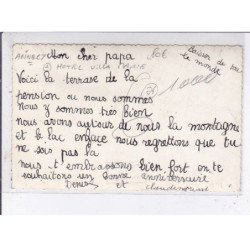 Annecy
Hotel Villa Marie
80€
baisers de tout
le monde
Mon cher papa
1000
Voici la terrasse de la
pension ou nous sommes
Nous y sommes très bien
nous avons autour de nous la montagne
et le lac enface nous regrettons que tu
ne sois pas là
nous t'embrassons bien fort en te
souhaitons un bonne anniversaire
et